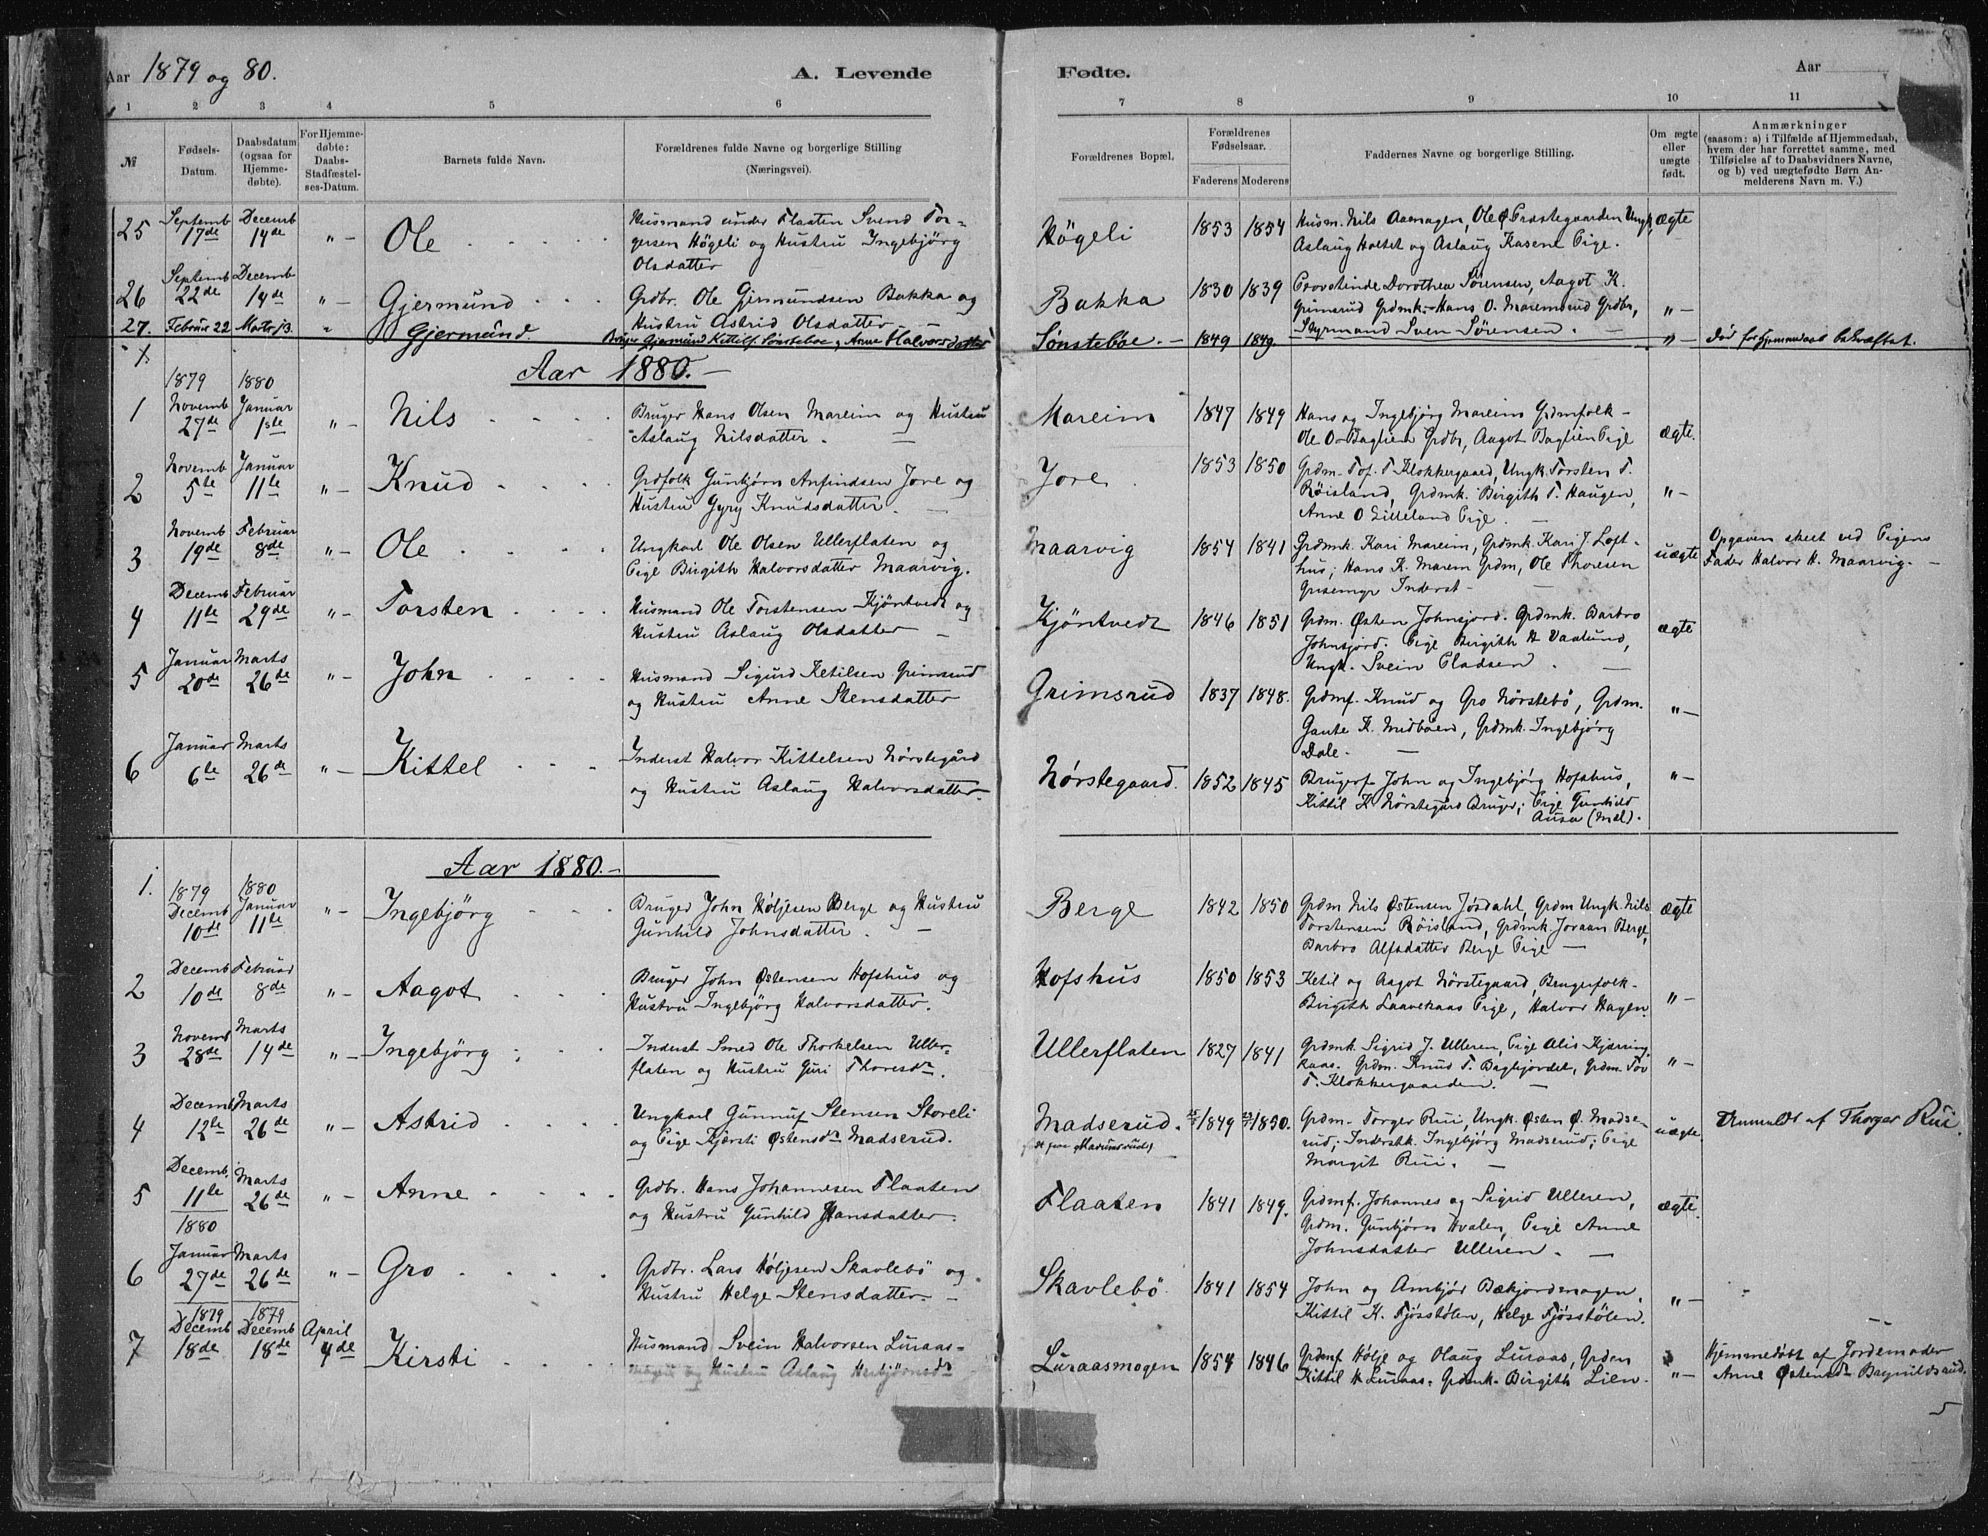 Aar 1879 og 80. A. Levende Fødte. Aar
1 2 3 4 5 6 7 8 9 10 11
№ Fødsels-Datum. Daabsdatum (ogsaa for Hjemmedøbte). For Hjemmedøbte: Daabs-Stadfæstelses-Datum. Barnets fulde Navn. Forældrenes fulde Navne og borgerlige Stilling (Næringsvei). Forældrenes Bopæl. Forældrenes Fødselsaar. Faderens Moderens Faddernes Navne og borgerlige Stilling. Om ægte eller uægte født. Anmærkninger (saasom: a) i Tilfælde af Hjemmedaab, hvem der har forrettet samme, med Tilføielse af to Daabsvidners Navne, og b) ved uægtefødte Børn Anmelderens Navn m. V.)
25 Septemb 17de Decemb 14de "— Ole Husmand under Flaaten Svend Torgersen Høgeli og Hustru Ingebjörg Olsdatter Høgeli 1853 1854 Husm. Nils Aamogen, Ole Ø Præstegaarden Ungk, Aslaug Holtet og Aslaug Kasene Pige. ægte
26 Septemb 22de Decemb 14de "— Gjermund Grdbr. Ole Gjermundsen Bakka og Hustru Astrid Olsdatter — Bakka 1830 1839 Provstinde Dorothea Sørensen, Aagot K. Grimsrud Grdmk. Hans O. Maremsrud Grdbr, Styrmand Sven Sørensen. — "—
27. Februar 22 Marts 13. " Gjermund. Bruger Gjermund Kittils. Sönsteboe, Anne Halvorsdatter Sönsteboe. — 1849 1849. "— Død før Hjemmedaab bekræftet.
Aar 1880. —
1 1879 Novemb 27de 1880 Januar 1ste "— Nils Bruger Hans Olsen Mareim og Hustru Aslaug Nilsdatter. — Mareim 1847 1849 Hans og Ingebjörg Mareim Grdmfolk — Ole O. Baglien Grdbr, Aagot Baglien Pige ægte.
2 Novemb 5te Januar 11te "— Knud Grdfolk Gunbjørn Anfindsen Jore og Hustru Gyry Knudsdatter. — Jore 1853 1850 Grdm. Tof. T. Klokkergaard, Ungk. Torsten T. Röisland, Grdmk. Birgith T. Haugen, Anne O Lilleland Pige. — "—
3 Novemb 19de Februar 8de "— Ole Ungkarl Ole Olsen Ullerflaten og Pige Birgith Halvorsdatter Maarvig. Maarvig 1854 1841 Grdmk. Kari Mareim, Grdmk. Kari J. Lofthus; Hans K. Marem Grdm, Ole Thoresen Inderst — uægte Opgaven skeet ved Pigens Fader Halvor H. Maarvig. —
4 Decemb 11te Februar 29de "— Torsten Husmand Ole Torstensen Kjöntvedt og Hustru Aslaug Olsdatter — Kjöntvedt 1846 1851 Grdm. Østen Johnsjord. Grdmk. Barbro Johnsjord. Pige Birgith H Vaalund, Ungk. Svein Pladsen. — ægte
5 Januar 20de Marts 26de "— John Husmand Sigurd Ketilsen Grimsrud og Hustru Anne Stensdatter Grimsrud 1837 1848. Grdmf. Knud og Gro Nörstebö, Grdm. Gaute K. Midböen, Grdmk. Ingebjörg Dale. — "—
6 Januar 6te Marts 26de "— Kittel Inderst Halvor Kittelsen Nörstegård og Hustru Aslaug Halvorsdatter. Nörstegaard. 1852 1845 Brugerf. John og Ingebjörg Hofshus, Kittil H Nörstegård Bruger; Pige Gunhild Ausa (Mæl). "—
Aar 1880. —
1. 1879 Decemb 10de 1880 Januar 11te "— Ingebjörg Bruger John Höljesen Berge og Hustru Gunhild Johnsdatter. — Berge 1842 1850 Grdm Nils Østensen Jösdahl, Grdm Ungk. Nils Torstensen Röisland, Grdmk. Joraan Berge, Barbro Alfsdatter Berge Pige — ægte
2 Decemb 10de Februar 8de "— Aagot Bruger John Østensen Hofshus og Hustru Ingebjörg Halvorsdatter. Hofshus 1850 1853 Ketil og Aagot Nörstegaard, Brugerfolk. Birgith Laavekaas Pige, Halvor Hagen. "—
3 Novemb 28de Marts 14de "— Ingebjörg Inderst Smed Ole Thorkelsen Ullerflaten og Hustru Guri Thoresdr. Ullerflaten 1827 1841 Grdmk. Sigrid J. Ulleren, Pige Alis Kjærringkaas. Grdm. Knud T. Baglijordet, Grdm. Tov T. Klokkergaarden. — "—
4 Decemb 12te Marts 26de "— Astrid Ungkarl Gunnuf Stensen Storeli og Pige Kjersti Østensdr Madserud. Madserud. 1849 1850. Grdm. Torger Rui, Ungk. Østen Ø. Madserud; Inderstk. Ingebjörg Madserud; Pige Margit Rui. — uægte Anmeldt af Thorger Rui.
5 Decemb. 11te Marts 26de "— Anne Grdbr. Hans Johannesen Flaaten og Hustru Gunhild Hansdatter. Flaaten 1841 1849. Grdmf. Johannes og Sigrid Ulleren, Grdm. Gunbjörn Hvalen, Pige Anne Johnsdatter Ulleren. — ægte.
6 1880 Januar 27de Marts 26de "— Gro Grdbr. Lars Höljesen Skavlebö og Hustru Helge Stensdatter — Skavlebö 1841 1854 John og Ambjør Bækjordmogen, Kittil K. Fjösstölen, Helge Fjösstölen. "—
7 1879 Decemb 18de 1879 Decemb 18de April 4de Kirsti Husmand Svein Halvorsen Luraasmogen og Hustru Aslaug Herbjörnsdr Luraasmogen 1854 1846 Grdmf Hölje og Olaug Luraas, Grdm Kittil H Luraas. Grdmk. Birgith Lien. "— Hjemmedöbt af Jordemoder Anne Østensdr Bøynildsrud.